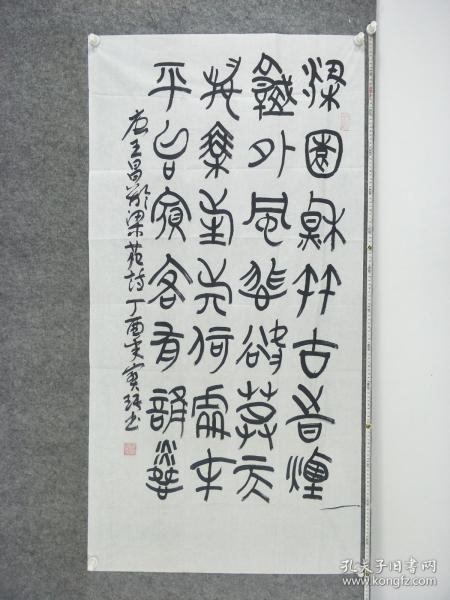 梁園秋竹古時煙
城外風悲欲暮天
萬乘旌旗何處在
平台賓客有誰憐
唐王昌齡梁苑詩丁酉
孔夫子旧书网
www.kongfz.com